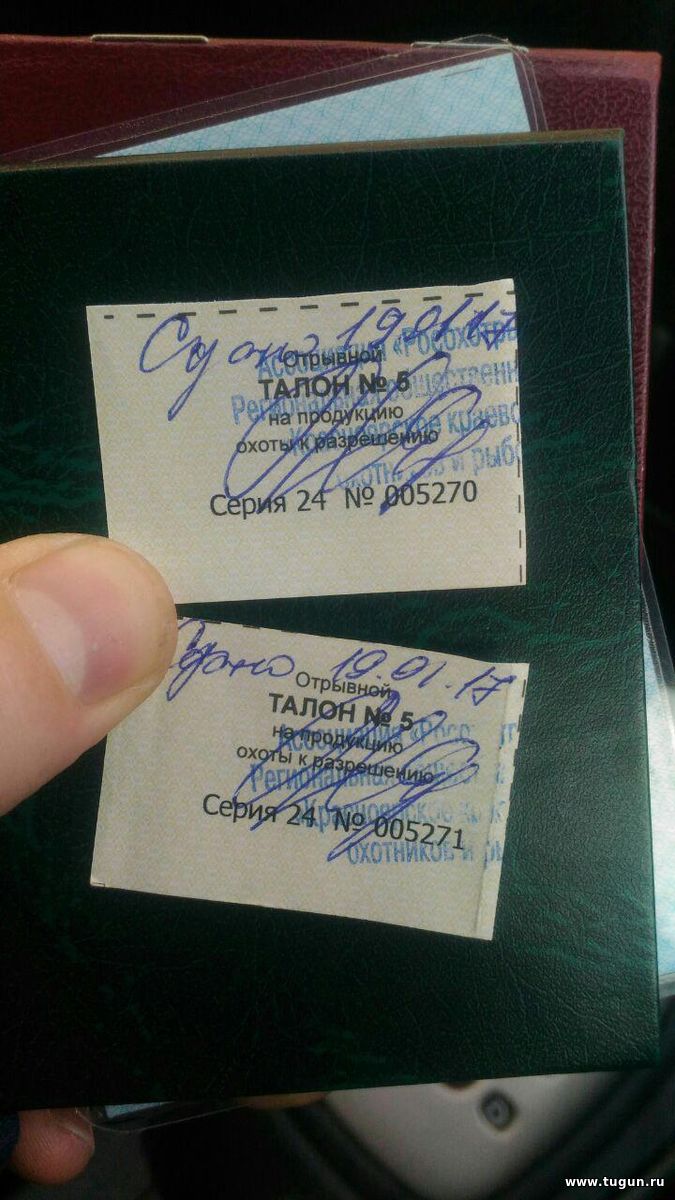 Сдано 19.01.17
Отрывной
ТАЛОН № 5
на продукцию
охоты к разрешению
Серия 24 № 005270
Ассоциация «Росохотры
Региональная общественн
Красноярское краево
охотников и рыбо
Сдано 19.01.17
Отрывной
ТАЛОН № 5
на продукцию
охоты к разрешению
Серия 24 № 005271
Ассоциация «Росо
Региональная
Красноярское
охотников и ры
www.tugun.ru